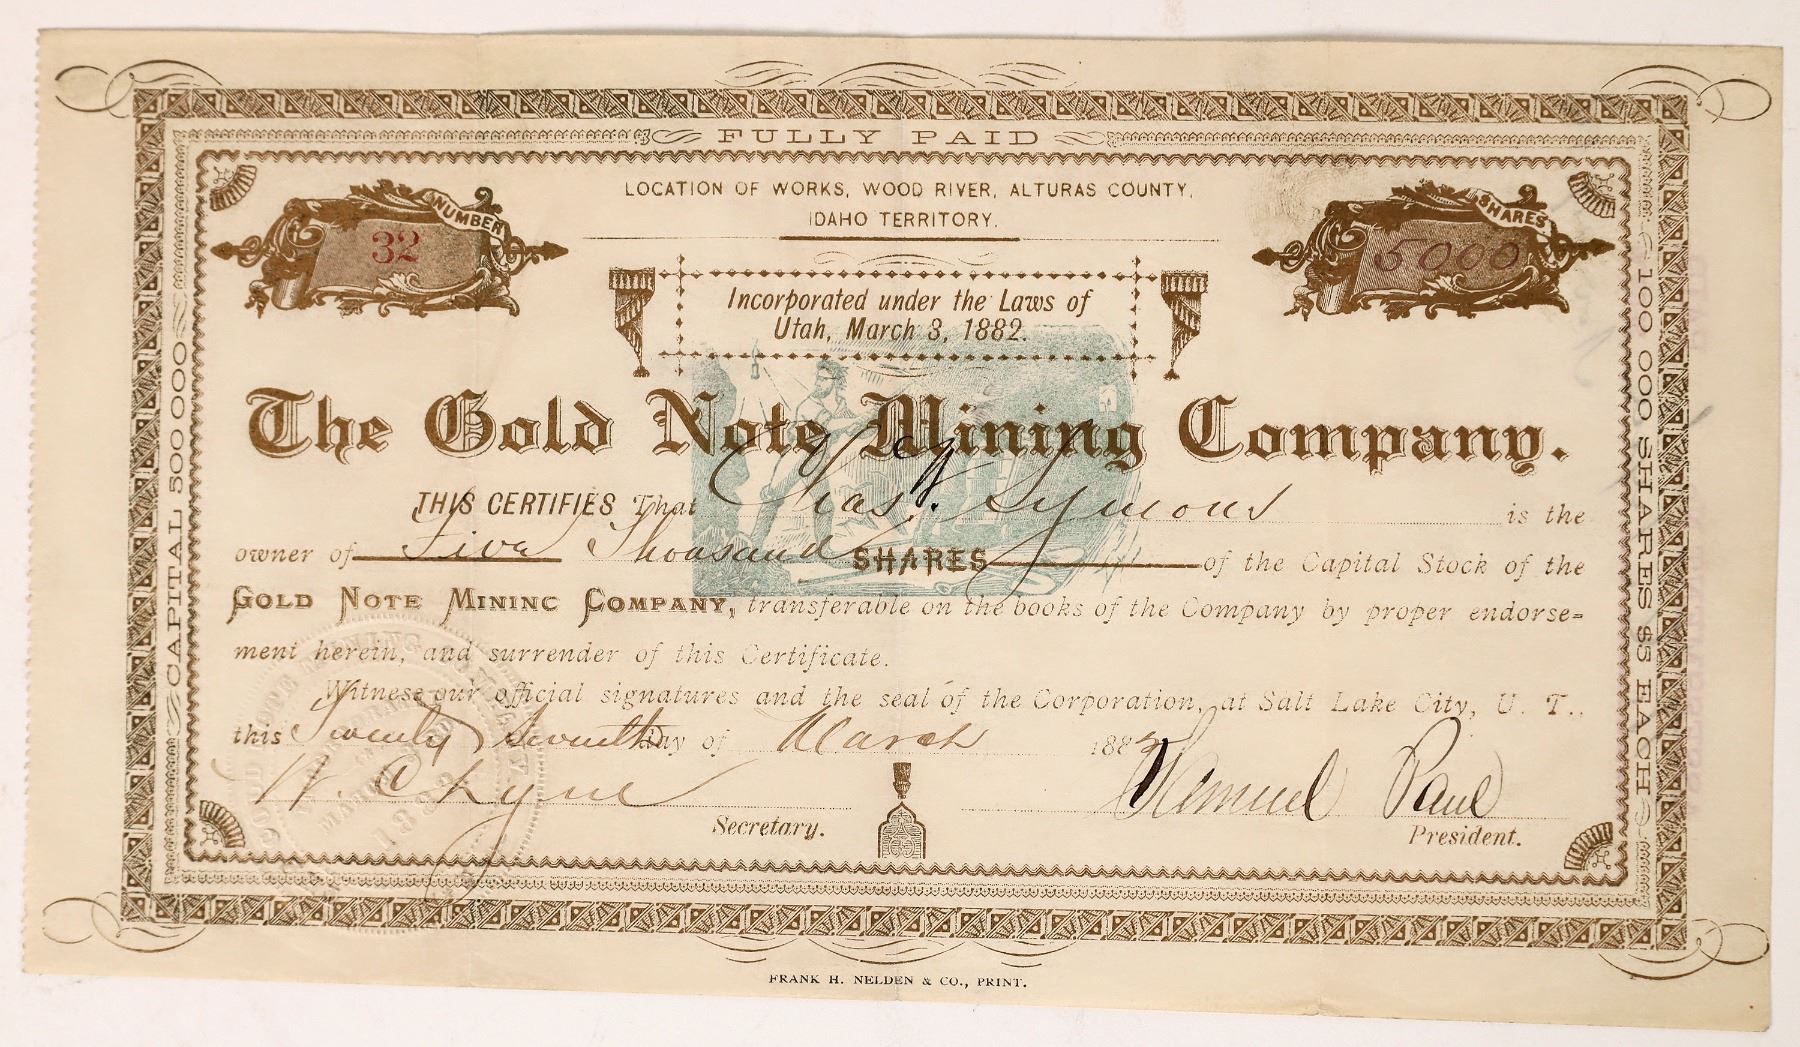 FULLY PAID
LOCATION OF WORKS, WOOD RIVER, ALTURAS COUNTY,
IDAHO TERRITORY.
NUMBER
32
SHARES
5000
Incorporated under the Laws of
Utah, March 3, 1882.
The Gold Note Mining Company.
THIS CERTIFIES That Chas. W. Symons is the
owner of Five Thousand SHARES of the Capital Stock of the
GOLD NOTE MINING COMPANY, transferable on the books of the Company by proper endorse=
ment herein, and surrender of this Certificate.
Witness our official signatures and the seal of the Corporation, at Salt Lake City, U. T.,
this Twenty Seventh Day of March 188
W. C. Lyne
Secretary.
Lemuel Paul
President.
CAPITAL 500 000
100 000 SHARES $5 EACH
FRANK H. NELDEN & CO., PRINT.